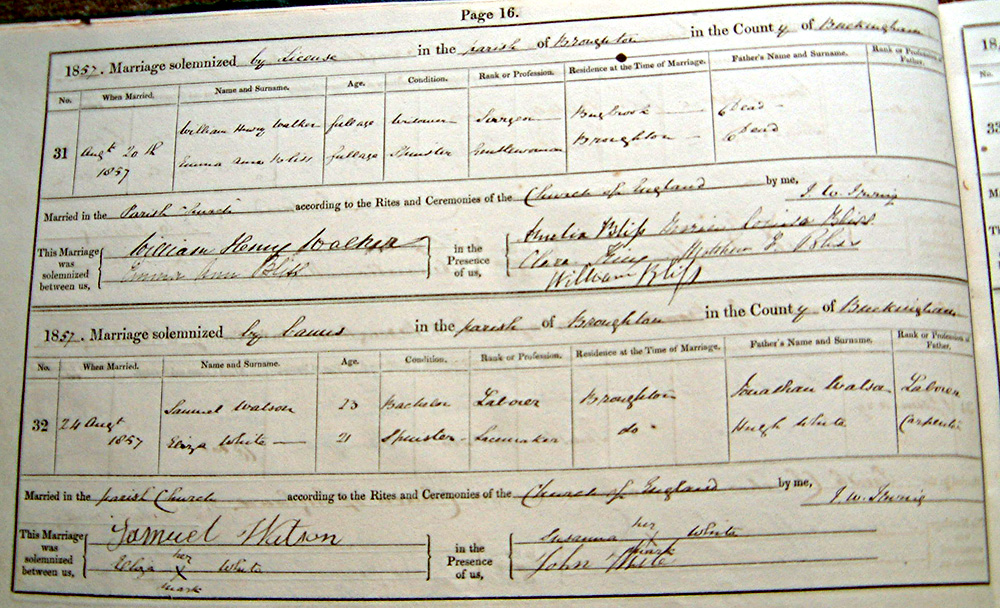 Page 16.
1857. Marriage solemnized by License in the parish of Broughton in the County of Buckingham
No. When Married. Name and Surname. Age. Condition. Rank or Profession. Residence at the Time of Marriage. Father's Name and Surname. Rank or Profession of Father.
31 Augt 20th 1857 William Henry Walker full age Widower Surgeon Bugbrook Dead
Emma Ann Bliss full age Spinster Gentlewoman Broughton Dead
Married in the Parish Church according to the Rites and Ceremonies of the Church of England by me, J. W. Irving
This Marriage was solemnized between us, William Henry Walker in the Presence of us, Amelia Bliss Louisa Bliss
Emma Ann Bliss Clara
William Bliss
1857. Marriage solemnized by banns in the parish of Broughton in the County of Buckingham
No. When Married. Name and Surname. Age. Condition. Rank or Profession. Residence at the Time of Marriage. Father's Name and Surname. Rank or Profession of Father.
32 24 Augt 1857 Samuel Watson 23 Bachelor Laborer Broughton Jonathan Watson Laborer
Eliza White 21 Spinster Lacemaker do Hugh White Carpenter
Married in the parish Church according to the Rites and Ceremonies of the Church of England by me, J. W. Irving
This Marriage was solemnized between us, Samuel Watson in the Presence of us, Susanna her mark White
Eliza her X mark White John White